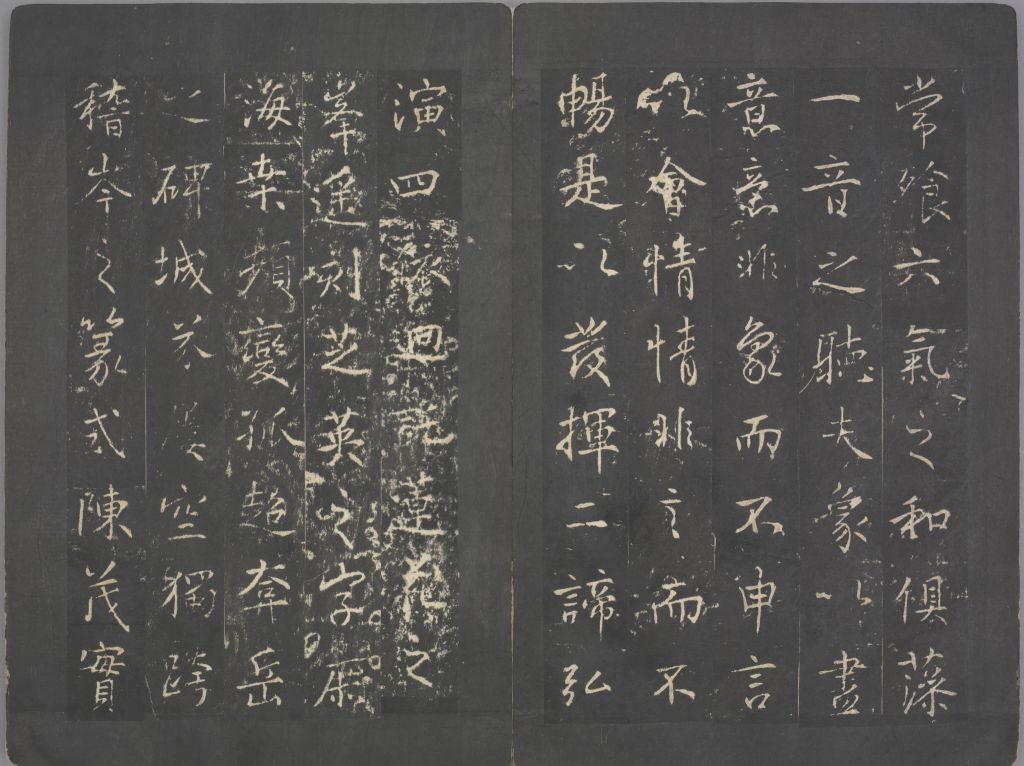 常飡六氣之和俱藻
一音之聽夫象以盡
意意非象而不申言
以會情情非言而不
暢是以發揮二諦弘
演四
峯遥刻芝英之字
海桒頽變孤超夲岳
之碑城芥空獨跨
稽岑之篆式陳茂實